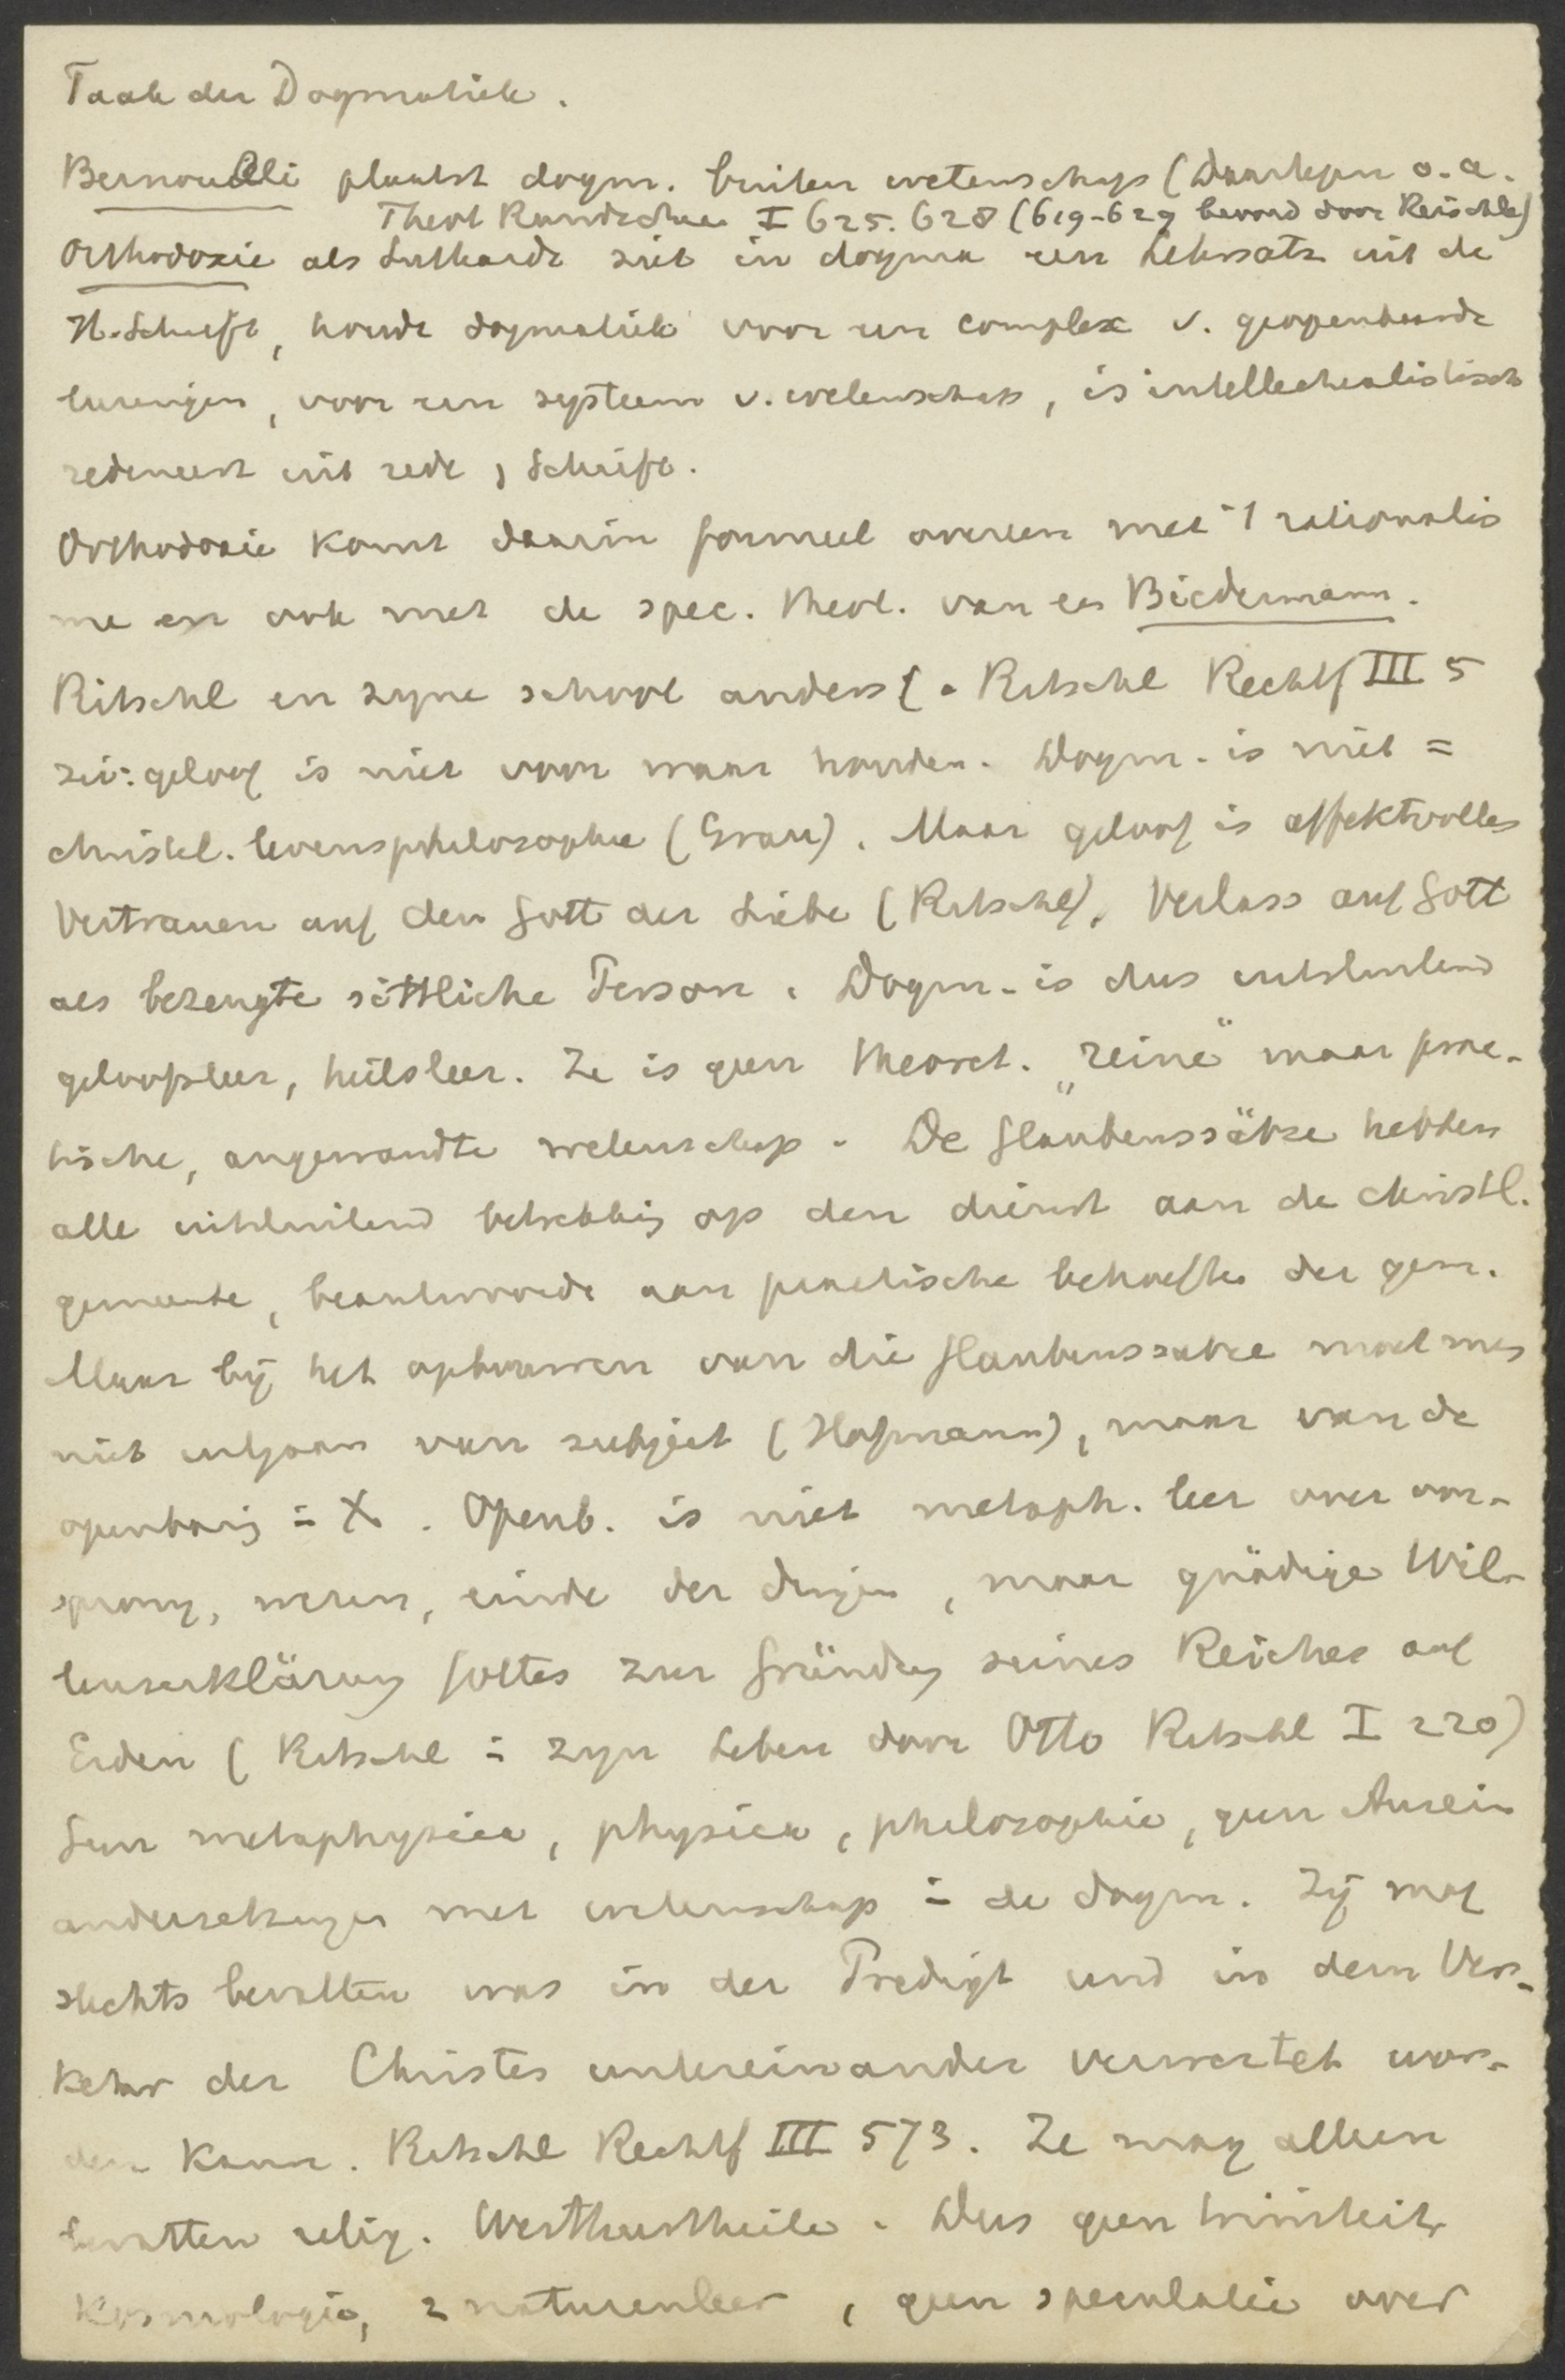 Taak der Dogmatiek.
Bernouilli plaatst dogm. buiten wetenschap (Daartegen o.a.
Theol Rundschau I 625. 628 (619-629 beoord door Reischle)
Orthodoxie als Luthardt ziet in dogma een Lehrsatz uit de
H. Schrift, houdt dogmatiek voor een complex v. geopenbaarde
leeringen, voor een systeem v. wetenschap, is intellectualistisch
redeneert uit rede, Schrift.
Orthodoxie komt daarin formeel overeen met 't rationalis
me en ook met de spec. theol. van een Biedermann.
Ritschl en zyne school anders (. Ritschl Rechtf III 5
zei: geloof is niet voor waar houden. Dogm. is niet =
christel. levensphilosophie (Grau). Maar geloof is affektvolles
Vertrauen auf den Gott der Liebe (Ritschl), Verlass auf Gott
als bezeugte sittliche Person. Dogm. is dus uitsluitend
geloofsleer, heilsleer. Ze is geen theoret. „reine" maar prac-
tische, angewandte wetenschap. De Glaubenssätze hebben
alle uitsluitend betrekking op den dienst aan de Christl.
gemeente, beantwoordt aan practische behoeften der gem.
Maar bij het opbouwen van die Glaubenssatze moet men
niet uitgaan van subject (Hofmann), maar van de
openbaring = X. Openb. is niet metaph. leer over oor-
sprong, wezen, einde der dingen, maar gnädige Wil-
lenserklärung Gottes zur Gründung seines Reiches auf
Erden (Ritschl = zyn Leben door Otto Ritschl I 220)
Geen metaphysica, physica, philosophie, geen Ausein
andersetzungen met wetenschap = de dogm. Zij mag
slechts bevatten was in der Predigt und in dem Ver-
kehr der Christen untereinander verwertet wer-
den kann. Ritschl Rechtf III 573. Ze mag alleen
bevatten relig. Werthurtheile. Dus geen triniteit
Kosmologie, 2 naturenleer, geen speculatie over